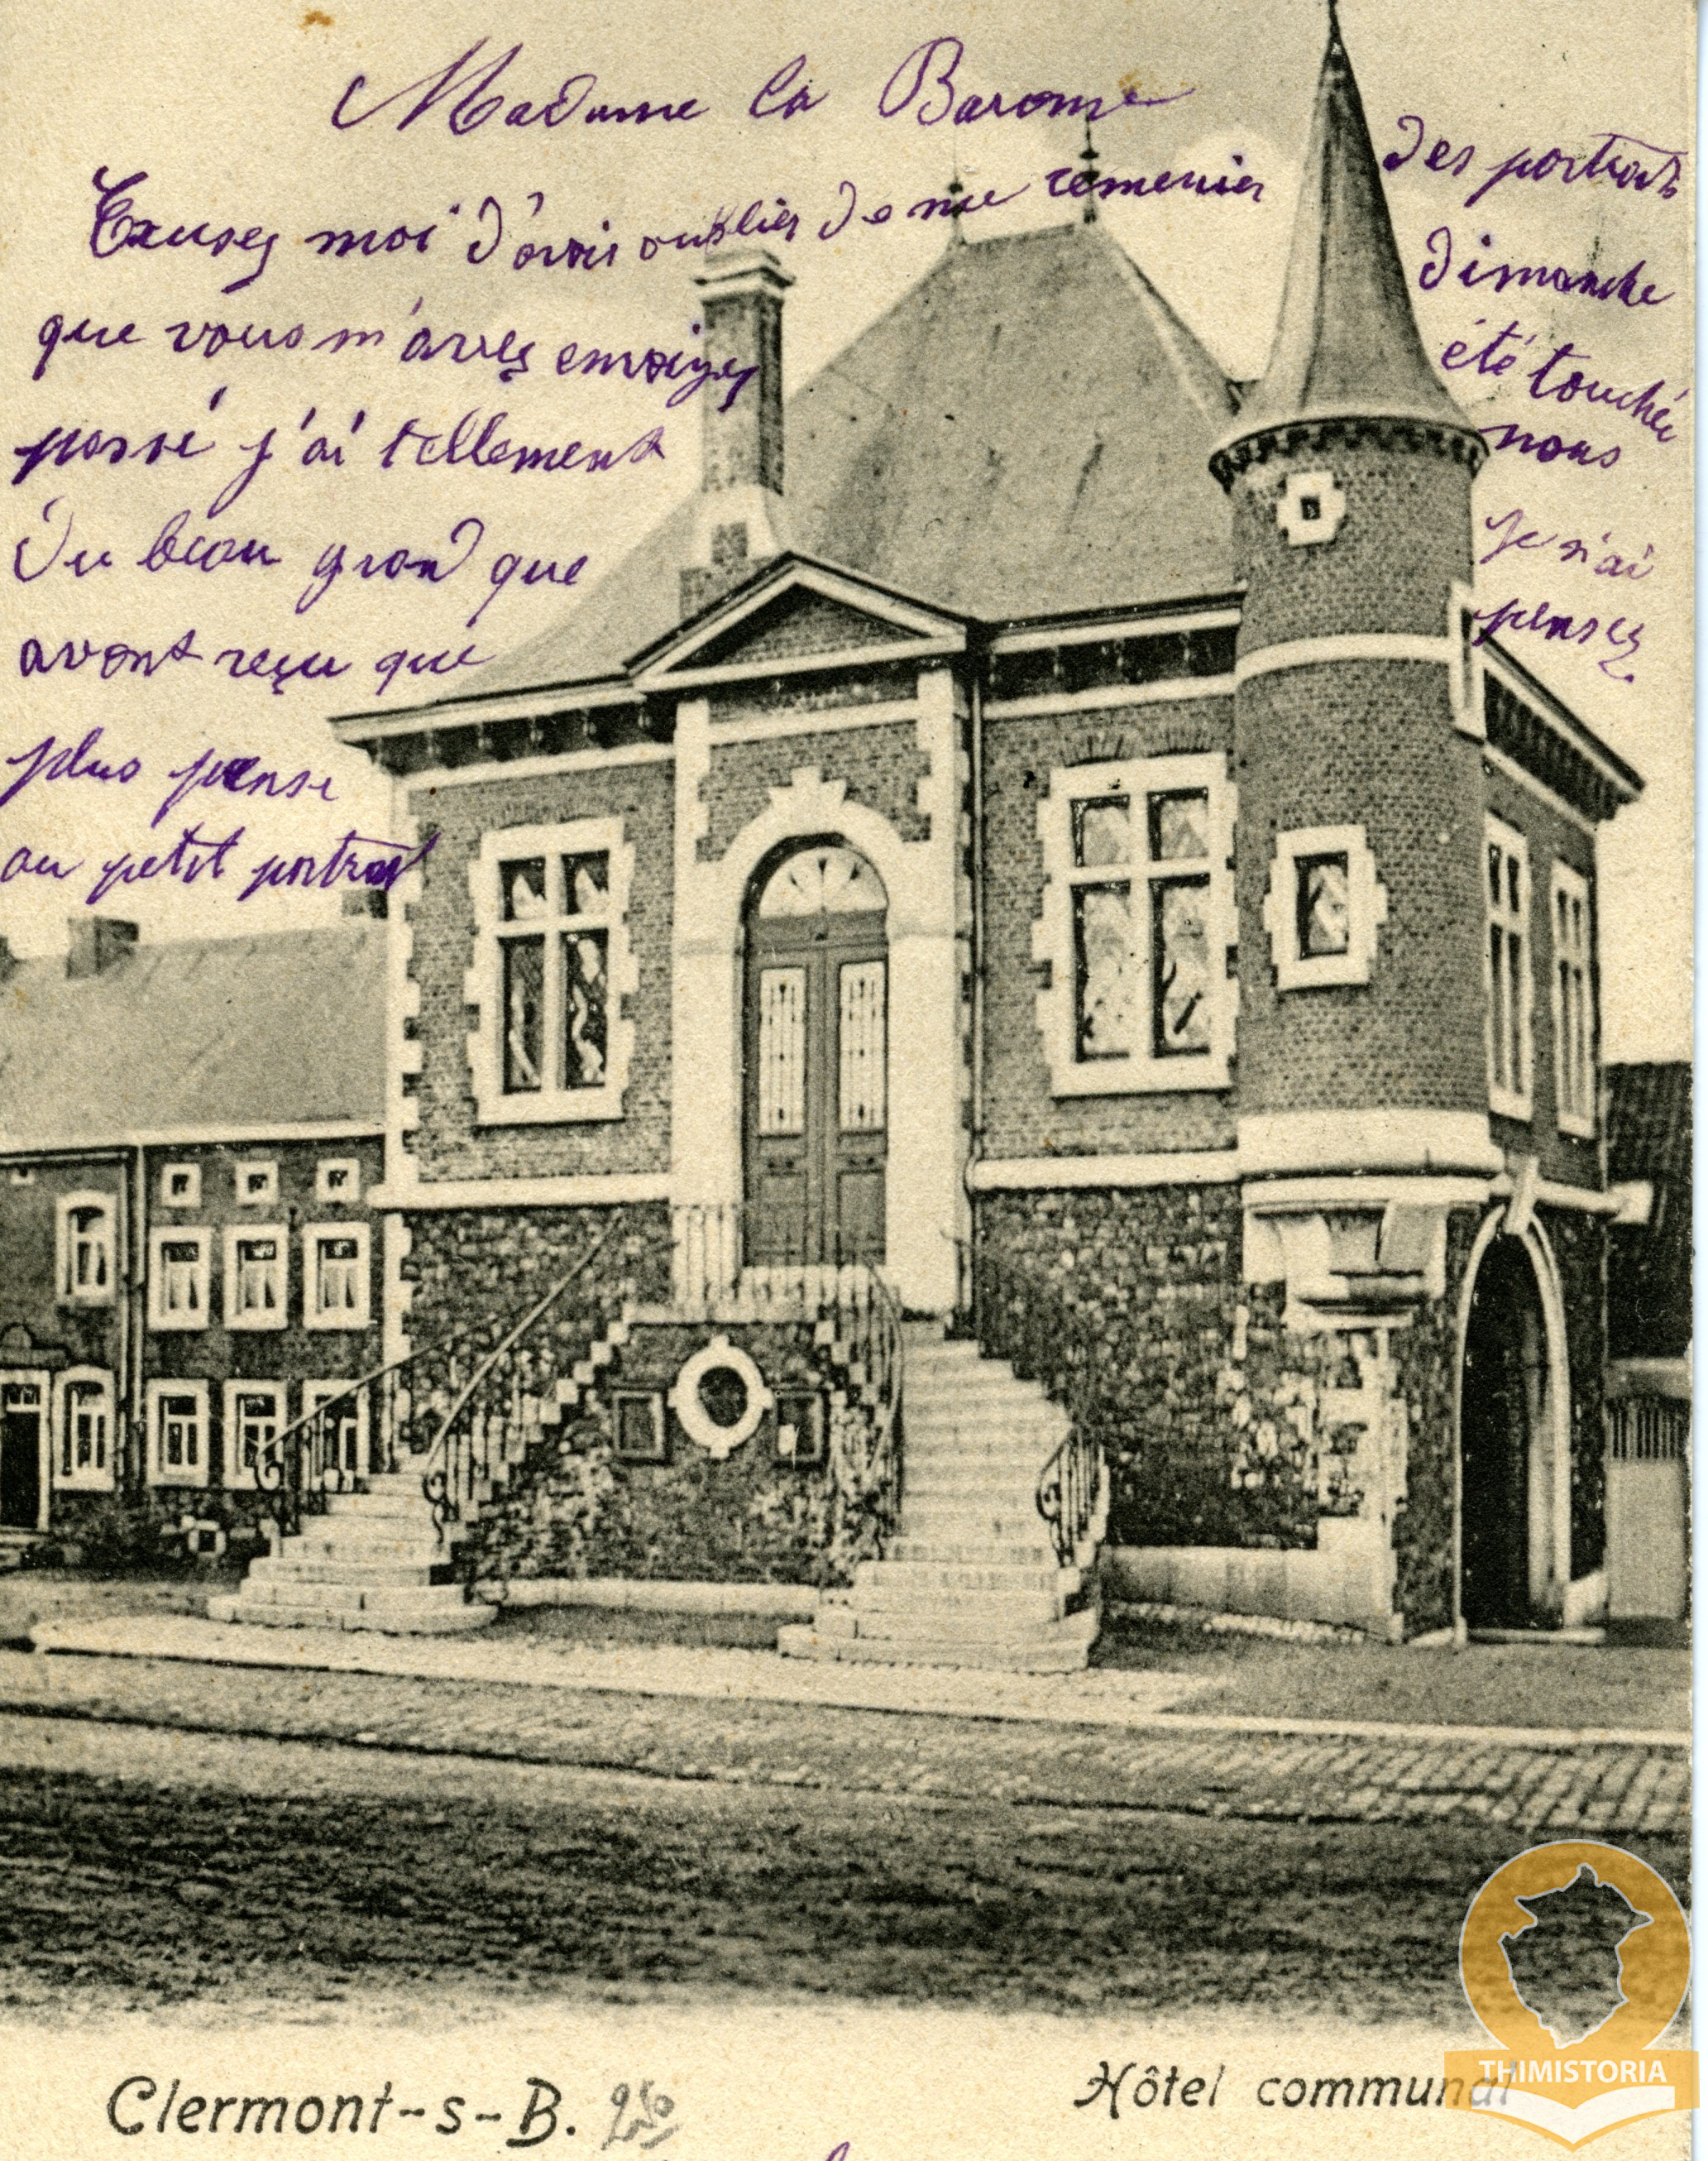 Madame la Baronne
Excusez moi d'avoir oublier de me remerier des portraits
que vous m'avez envoiyez dimanche
passé j'ai tellement été touchée
du beau grand que nous
avont reçu que je n'ai
plus pense pensez
au petit portrait
Clermont-s-B. 250
Hôtel communal
THIMISTORIA